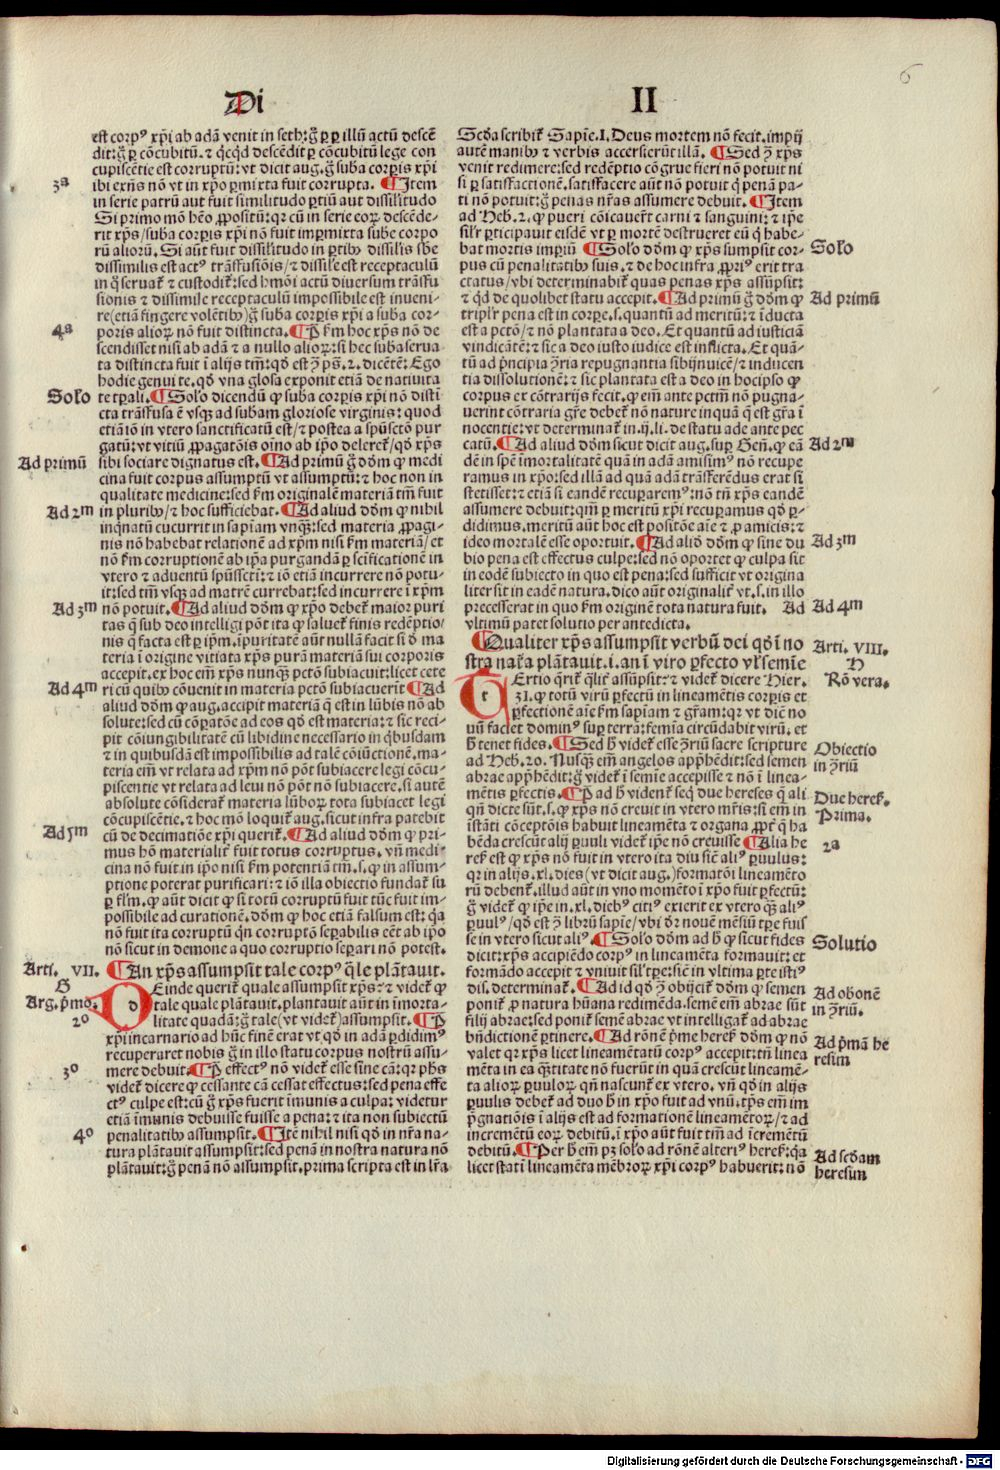 6
Di
II
est corpꝰ xp̄i ab adā venit in seth: g̊ ꝑ ꝑ illū actū descē
dit: g̊ ꝑ cōcubitū. ⁊ q̇cq̇d descēdit ꝑ cōcubitū lege con
cupiscētie est corruptū: vt dicit aug. g̊ suba corꝑis xp̄i
3ª
ibi exn̄s nō vt in xp̄o ꝑmixta fuit corrupta. ¶ Item
in serie patrū aut fuit similitudo ꝑtiū aut dissilitudo
Si primo mō hēo ꝓpositū: qꝛ cū in serie eoꝝ descēde-
rit xp̄s/ suba corꝑis xp̄i nō fuit imꝑmixta sube corpo
rū alioꝝ. Si aūt fuit dissilitudo in ꝑtibꝰ dissilis sbe
dissimilis est actꝰ trāsfusiōis/ ⁊ dissile est receptaculū
in q̊ seruat᷑ ⁊ custodit᷑: sed hmōi actū diuersum trāsfu
sionis ⁊ dissimile receptaculū impossibile est inueni-
re (etiā fingere volētibꝰ) g̊ suba corꝑis xp̄i a suba cor-
4ª
poris alioꝝ nō fuit distincta. ¶ P̄ fm hoc xp̄s nō de
scendisset nisi ab adā ⁊ a nullo alioꝝ: si hec suba serua
ta distincta fuit ī alijs tm̄: qd̄ est ꝯ̄ ps̄. 2. dicētē: Ego
hodie genui te. qd̄ vna glosa exponit etiā de natiuita
Solo
te tꝑali. ¶ Solo dicendū ꝙ suba corꝑis xp̄i nō disti
cta trāsfusa ē vsqꝫ ad subam gloriose virginis: quod
etiā iō in vtero sanctificatū est/ ⁊ postea a spūscto pur
gatū: vt vitiū ꝓpagatōis oīno ab ip̄o deleret᷑/ qd̄ xp̄s
Ad primū
sibi sociare dignatus est. ¶ Ad primū g̊ dōm ꝙ medi
cina fuit corpus assumptū vt assumptū: ⁊ hoc non in
qualitate medicine: sed fm originalē materiā tm̄ fuit
Ad 2m
in pluribꝰ/ ⁊ hoc sufficiebat. ¶ Ad aliud dōm ꝙ nihil
inq̇natū cucurrit in sap̄iam vnqꝫ: sed materia ꝓpagi-
nis nō habebat relationē ad xp̄m nisi fm materiā/ et
nō fm corruptionē ab ip̄a purgandā ꝑ scīficationē in
vtero ⁊ aduentū spūsscti: ⁊ iō etiā incurrere nō potu-
it: sed tm̄ vsqꝫ ad matrē currebat: sed incurrere ī xp̄m
Ad 3m
nō potuit. ¶ Ad aliud dōm ꝙ xp̄o debet᷑ maior puri
tas q̄ sub deo intelligi pōt ita ꝙ saluet᷑ finis redēptio/
nis q̄ facta est ꝑ ip̄m. ip̄uritatē aūt nullā facit si d̄ ma
teria ī origine vitiata xp̄s purā materiā sui corporis
accepit. ex hoc em̄ xp̄s nunqꝫ pctō subiacuit: licet cete
Ad 4m
ri cū quibꝰ cōuenit in materia pctō subiacuerit ¶ Ad
aliud dōm ꝙ aug. accipit materiā q̄ est in lūbis nō ab
solute: sed cū cōꝑatōe ad eos qd̄ est materia: ⁊ sic reci-
pit cōiungibilitatē cū libidine necessario in q̇busdam
⁊ in quibusdā est impossibilis ad talē cōiūctionē. ma-
teria em̄ vt relata ad xp̄m nō pōt subiacere legi cōcu-
piscentie vt relata ad leui nō pōt nō subiacere. si autē
absolute cōsiderat᷑ materia lūboꝝ tota subiacet legi
cōcupiscētie. ⁊ hoc mō loquit᷑ aug. sicut infra patebit
Ad 5m
cū de decimatiōe xp̄i querit᷑. ¶ Ad aliud dōm ꝙ pri-
mus hō materialit᷑ fuit totus corruptus. vn̄ medi-
cina nō fuit in ip̄o nisi fm potentiā tm̄. s. ꝙ in assum-
ptione poterat purificari: ⁊ iō illa obiectio fundat᷑ su
ꝑ flm̄. ꝙ aūt dicit ꝙ si totū corruptū fuit tūc fuit im-
possibile ad curationē. dōm ꝙ hoc etiam falsum est: q̇a
nō fuit ita corruptū q̇n corruptō seꝑabilis eēt ab ip̄o
nō sicut in demone a quo corruptio seꝑari nō potest.
Arti. VII.
¶ An xp̄s assumpsit tale corpꝰ q̄le plātauit.
G
Deinde querit᷑ quale assumpsit xp̄s: ⁊ videt᷑ ꝙ
Arg. p̄mo.
tale quale plātauit. plantauit aūt in īmorta-
2o
litate quadā: g̊ tale (vt videt᷑) assumpsit. ¶ P̄
xp̄i incarnario ad hūc finē erat vt qd̄ in adā ꝑdidimꝰ
recuperaret nobis g̊ in illo statu corpus nostrū assu-
3o
mere debuit. ¶ P̄ effectꝰ nō videt᷑ esse sine cā: qꝛ ph̄s
videt᷑ dicere ꝙ cessante cā cessat effectus: sed pena effe
ctꝰ culpe est: cū g̊ xp̄s fuerit īmunis a culpa: videtur
etiā īmunis debuisse fuisse a pena: ⁊ ita non subiectū
4o
penalitatibꝰ assumpsit. ¶ Itē nihil nisi qd̄ in nr̄a na-
tura plātauit assumpsit: sed penā in nostra natura nō
plātauit: g̊ penā nō assumpsit. prima scripta est in lr̄a
Scd̄a scribit᷑ Sapiē. I. Deus mortem nō fecit. impij
autē manibꝰ ⁊ verbis accersierūt illā. ¶ Sed ꝯ̄ xp̄s
venit redimere: sed redēptio cōgrue fieri nō potuit ni
si ꝑ satisfactionē. satisfacere aūt nō potuit q̇ penā pa-
ti nō potuit: g̊ penas nr̄as assumere debuit. ¶ Item
ad Heb. 2. ꝙ pueri cōicauer̄t carni ⁊ sanguini: ⁊ ip̄e
silr̄ ꝑticipauit eisdē vt ꝑ mortē destrueret eū q̇ habe-
Solo
bat mortis imꝑiū ¶ Solo dōm ꝙ xp̄s sumpsit cor-
pus cū penalitatibꝰ suis. ⁊ de hoc infra ꝓpriꝰ erit tra
ctatus/ vbi determinabit᷑ quas penas xp̄s assūpsit:
Ad primū
⁊ qd̄ de quolibet statu accepit. ¶ Ad primū g̊ dōm ꝙ
triplr̄ pena est in corꝑe. s. quantū ad meritū: ⁊ ī ducta
est a pctō/ ⁊ nō plantata a deo. Et quantū ad iusticiā
vindicātē: ⁊ sic a deo iusto iudice est inflicta. Et quā-
tū ad p̄ncipia ꝯ̄ria repugnantia sibijnuicē/ ⁊ inducen
tia dissolutionē: ⁊ sic plantata est a deo in hocipso ꝙ
corpus ex cōtrarijs fecit. ꝙ em̄ ante pctm̄ nō pugna-
uerint cōtraria gr̄e debet᷑ nō nature in qua q̄ est gr̄a ī
nocentie: vt determinat᷑ in. ij. li. de statu ade ante pec
Ad 2m
catū. ¶ Ad aliud dōm sicut dicit aug. suꝑ Gen̄. ꝙ eā
dē in spēm īmortalitatē quā in adā amisimꝰ nō recupe
ramus in xp̄o: sed illā ad quā adā trāsferēdus erat si
stetisset: ⁊ etiā si eandē recuꝑaremꝰ: nō tn̄ xp̄s eandē
assumere debuit: qm̄ ꝑ meritū xp̄i recuꝑamus qd̄ ꝑ-
didimus. meritū aūt hoc est positōe aīe ⁊ ꝓ amicis: ⁊
Ad 3m
ideo mortalē esse oportuit. ¶ Ad alid̄ dōm ꝙ sine du
bio pena est effectus culpe: sed nō oportet ꝙ culpa sit
in eodē subiecto in quo est pena: sed sufficit vt origina
liter sit in eadē natura. dico aūt originalit᷑ vt. s. in illo
Ad 4m
precesserat in quo fm originē tota natura fuit. Ad
vltimū patet solutio per antedicta.
Arti. VIII.
¶ Qualiter xp̄s assumpsit verbū dei qd̄ ī no
H
stra nat᷑a plātauit. i. an ī viro ꝑfecto vl̓ semīe
Rō vera.
Tertio q̄rit᷑ q̄lit᷑ assūpsit: ⁊ videt᷑ dicere Hier.
31. ꝙ totū virū ꝑfectū in lineamētis corꝑis et
ꝑfectionē aīe fm sapiam ⁊ gr̄am: qꝛ vt dic̄ no
uū faciet dominꝰ suꝑ terrā: femīa circūdabit virū. et
Obiectio
h̄ tenet fides. ¶ Sed h̄ videt᷑ esse ꝯ̄riū sacre scripture
in ꝯ̄riū
ad Heb. 20. Nusqꝫ em̄ angelos appr̄hēdit: sed semen
abrae appr̄hēdit: g̊ videt᷑ ī semīe accepisse ⁊ nō ī linea-
Due heret᷑.
mētis ꝑfectis. ¶ P̄ ad h̄ vident᷑ seq̇ due hereses q̄ ali
Prima.
qn̄ dicte sūt. s. ꝙ xp̄s nō creuit in vtero mr̄is: si em̄ in
īstāti cōceptōis habuit lineamēta ⁊ organa ꝓꝑt᷑ q̄ ha
2a
bēda crescūt alij ꝑuuli videt᷑ ip̄e nō creuisse ¶ Alia he
ref est ꝙ xp̄s nō fuit in vtero ita diu sic̄ aliꝰ ꝑuulus:
qꝛ in alijs. xl. dies (vt dicit aug.) formatōi lineamēto
rū debent᷑. illud aūt in vno momēto ī xp̄o fuit ꝑfectū:
g̊ videt᷑ ꝙ ip̄e in. xl. diebꝰ citiꝰ exierit ex vtero q̄ꝫ aliꝰ
ꝑuulꝰ/ qd̄ est ꝯ̄ librū sapiē/ vbi dr̄ nouē mēsiū tꝑe fuis
Solutio
se in vtero sicut aliꝰ. ¶ Solo dōm ad h̄ ꝙ sicut fides
dicit: xp̄s accipiēdo corpꝰ in lineamēta formauit: et
formādo accepit ⁊ vniuit sil̓ tꝑe: sic̄ in vltima ꝑte istiꝰ
Ad obonē
dis. determinat᷑. ¶ Ad id qd̄ ꝯ̄ obijcit᷑ dōm ꝙ semen
in ꝯ̄riū.
ponit᷑ ꝓ natura hūana redimēda. semē em̄ abrae sūt
filij abrae: sed ponit᷑ semē abrae vt intelligat᷑ ad abrae
Ad p̄mā he
bn̄dictionē ꝑtinere. ¶ Ad rōnē p̄me heret᷑ dōm ꝙ nō
resim
valet qꝛ xp̄s licet lineamētatū corpꝰ accepit: tn̄ linea
mēta in ea q̄titate nō fuerūt in quā crescūt lineamē-
ta alioꝝ ꝑuuloꝝ qn̄ nascunt᷑ ex vtero. vn̄ qd̄ in alijs
ꝑuulis debet᷑ ad duo h̄ in xp̄o fuit ad vnū. tp̄s em̄ im
p̄gnatiōis ī alijs est ad formationē lineamētoꝝ/ ⁊ ad
incremētū eoꝝ debitū. ī xp̄o aūt fuit tm̄ ad īcremētū
Ad scd̄am
debitū. ¶ Per h̄ em̄ pꝫ solo ad rōnē alteriꝰ heret᷑: q̇a
heresim
licet statī lineamēta mēbroꝝ xp̄i corpꝰ habuerit: nō
Digitalisierung gefördert durch die Deutsche Forschungsgemeinschaft - DFG